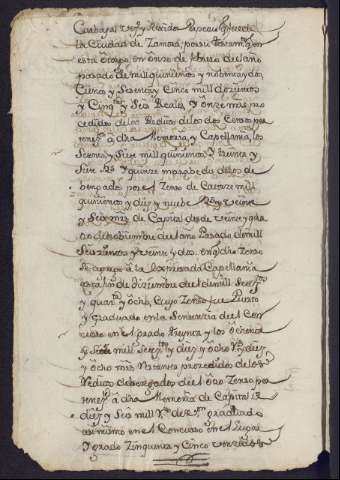 Carbajal vez.º y Rexidor Perpetuo que fue de
la Ciudad de Zamora, por su testam.to, con
esta otorgo, en onze de febrero del año
pasado de mil quinientos y nobenta y dos
Ciento y Sesenta y Cinco mil doscientos
y Cinq.ta y Seis Reales, y onze mrs pro
cedidos de los Reditos de los dos Censos per
tenez.tes a dha Memoria y Capellania, los
Setenta y Siete mil quinientos y treinta y
Siete R.s y quinze mrs de dellos de
bengados por el Zenso de Catorze mil
quinientos y diez y nuebe R.s y veinte
y Seis mrs de Capital desde veinte y qua
tro de Nobiembre del año Pasado de mill
Seiscientos y veinte y dos, en q dho Zenso
Se agrego a la expresada Capellania
hasta fin de Diziembre del de mill Setez.tos
y quar.ta y ocho, cuyo Zenso fue Puesto
y graduado en la Sentencia del Con
curso en el grado treynta y los ochenta
y Siete mill Setez.tos diez y ocho R.s y diez
y ocho mrs Restantes prozedidos de los
Reditos debengados del otro Zenso per
tenez.te a dha Memoria de Capital de
diez y Seis mill R.s de v.on graduado
asimismo en el Concurso en el Lugar
y grado Zinquenta y Cinco con los de